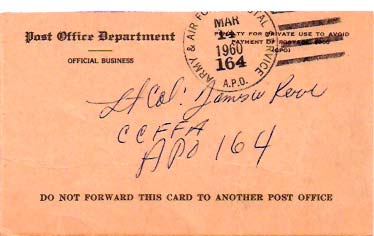 Post Office Department
OFFICIAL BUSINESS
ARMY & AIR FORCE POSTAL SERVICE
MAR
14
1960
164
A.P.O.
PENALTY FOR PRIVATE USE TO AVOID
PAYMENT OF POSTAGE, $300
(GPO)
Lt Col. James
CCFFA
APO 164
DO NOT FORWARD THIS CARD TO ANOTHER POST OFFICE